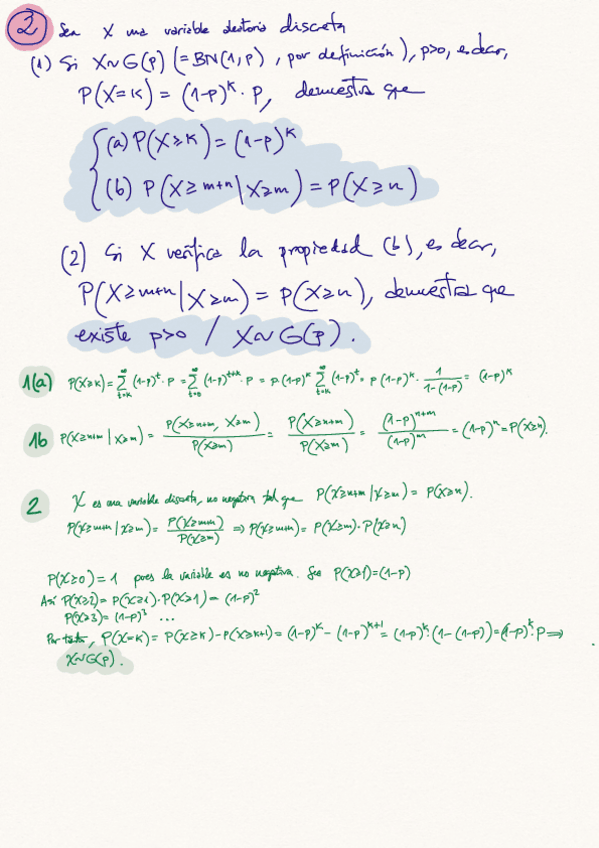 2 Sea X una variable aleatoria discreta
(1) Si X~G(p) (=BN(1,p), por definición), p>0, es decir,
P(X=k) = (1-p)^k · p, demuestra que
(a) P(X≥k) = (1-p)^k
(b) P(X≥m+n | X≥m) = P(X≥n)
(2) Si X verifica la propiedad (b), es decir,
P(X≥m+n | X≥m) = P(X≥n), demuestra que
existe p>0 / X~G(p).
1(a) P(X≥k) = ∑_{t=k}^∞ (1-p)^t · p = ∑_{t=0}^∞ (1-p)^{t+k} · p = p·(1-p)^k ∑_{t=k}^∞ (1-p)^t = p(1-p)^k · 1/(1-(1-p)) = (1-p)^k
1b P(X≥n+m | X≥m) = P(X≥n+m, X≥m)/P(X≥m) = P(X≥n+m)/P(X≥m) = (1-p)^{n+m}/(1-p)^m = (1-p)^n = P(X≥n).
2 X es una variable discreta, no negativa tal que P(X≥n+m | X≥m) = P(X≥n).
P(X≥m+n | X≥m) = P(X≥m+n)/P(X≥m) ⇒ P(X≥m+n) = P(X≥m)·P(X≥n)
P(X≥0) = 1 pues la variable es no negativa. Sea P(X≥1) = (1-p)
Así P(X≥2) = P(X≥1)·P(X≥1) = (1-p)^2
P(X≥3) = (1-p)^3 ...
Por tanto, P(X=k) = P(X≥k) - P(X≥k+1) = (1-p)^k - (1-p)^{k+1} = (1-p)^k·(1-(1-p)) = (1-p)^k·p ⇒
X~G(p).